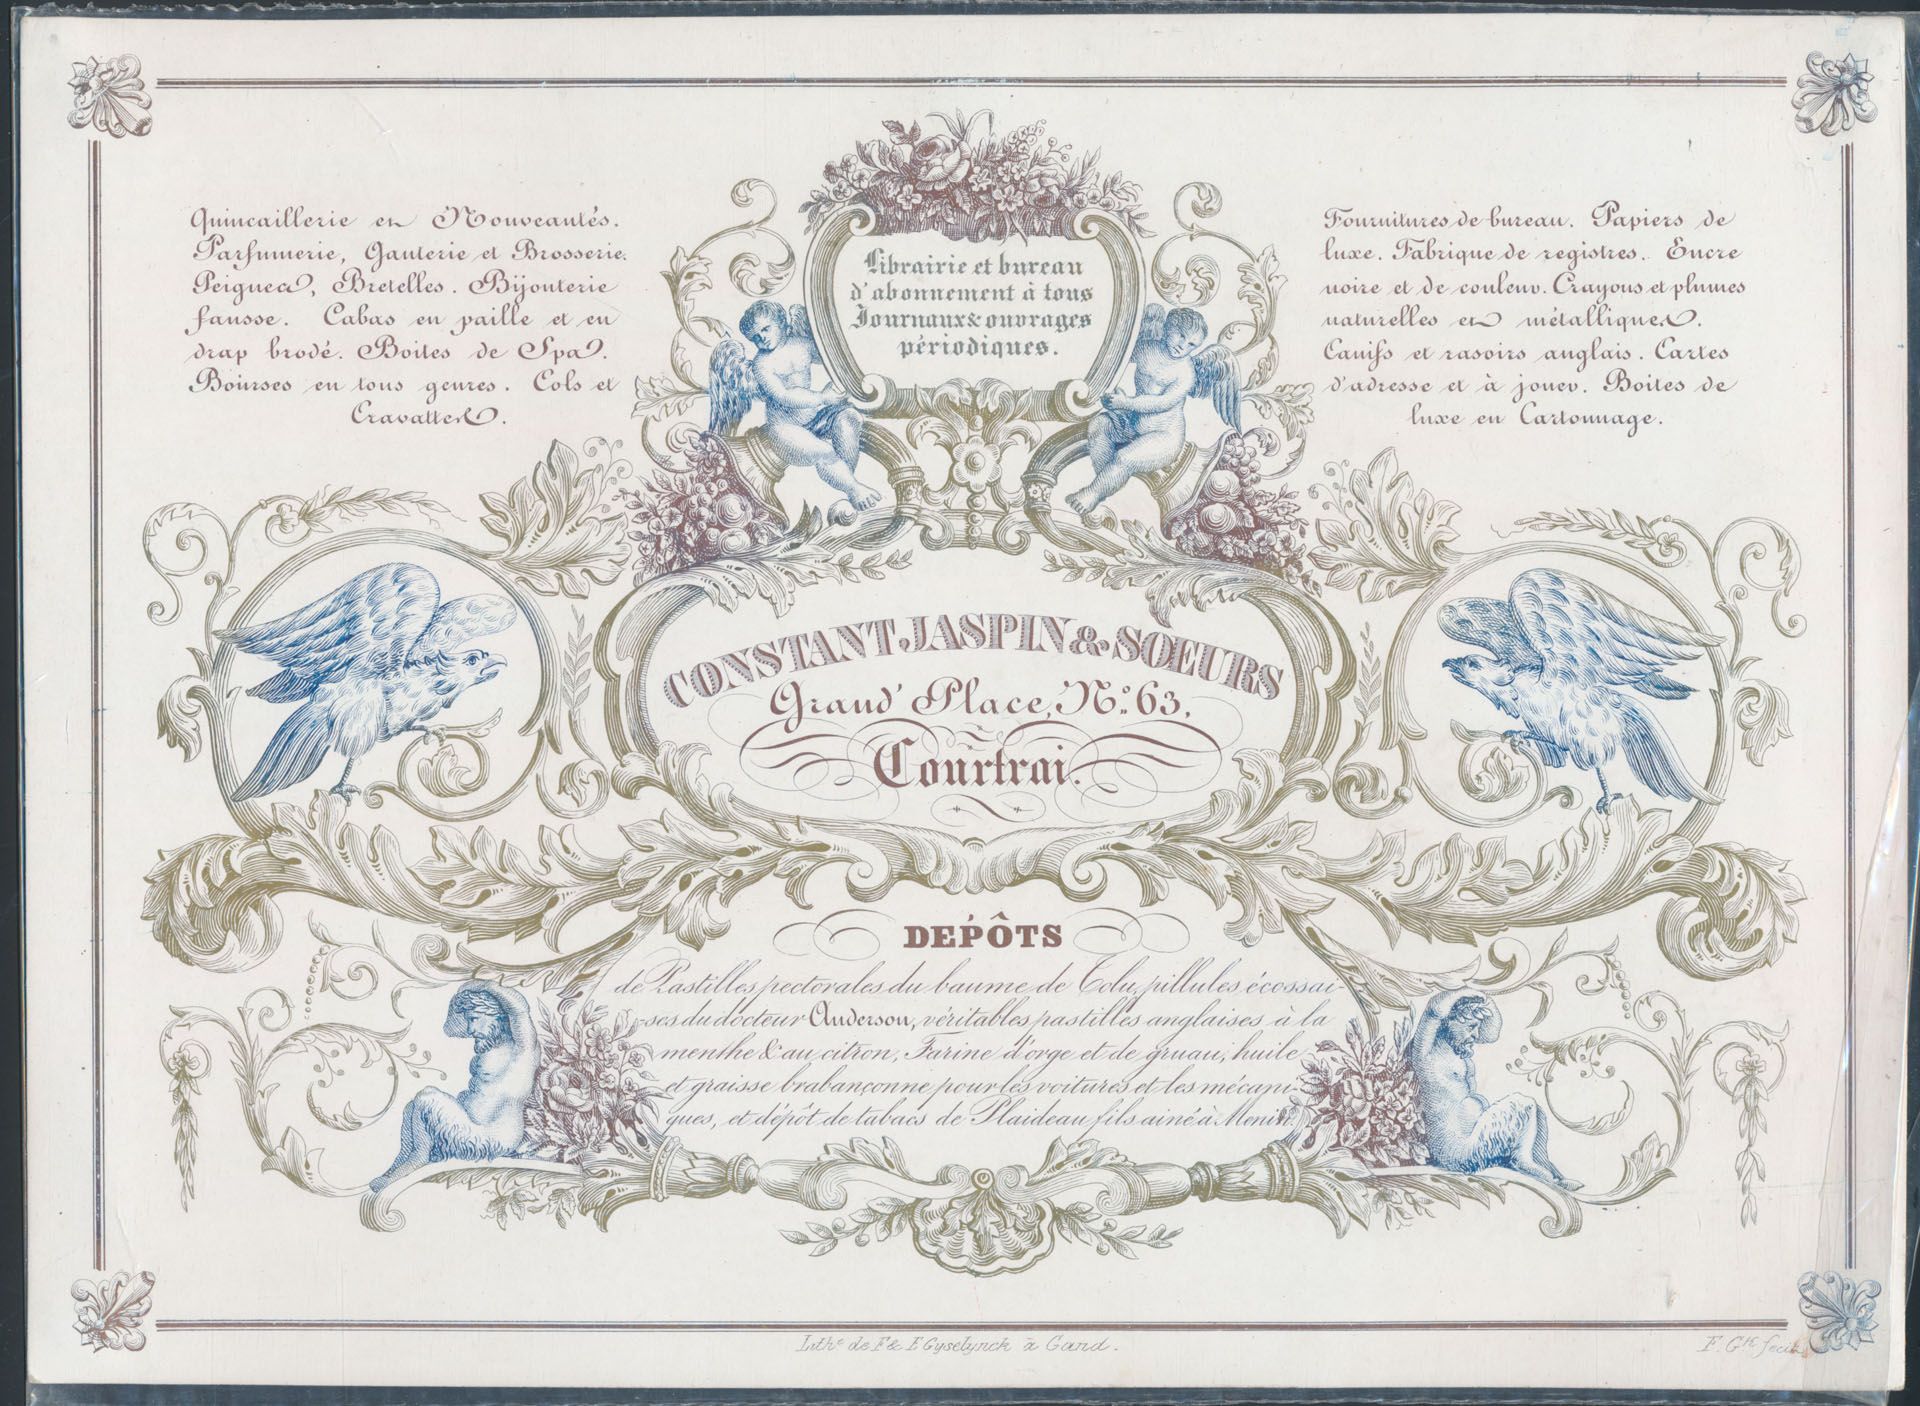 Quincaillerie en Nouveautés.
Parfumerie, Ganterie et Brosserie.
Peignes, Bretelles. Bijouterie
fausse. Cabas en paille et en
drap brodé. Boites de Spa.
Bourses en tous genres. Cols et
Cravattes.
Librairie et bureau
d'abonnement à tous
Journaux & ouvrages
périodiques.
Fournitures de bureau. Papiers de
luxe. Fabrique de registres. Encre
noire et de couleur. Crayons et plumes
naturelles et métalliques.
Canifs et rasoirs anglais. Cartes
d'adresse et à jouer. Boites de
luxe en Cartonnage.
CONSTANT JASPIN & SŒURS
Grand' Place, No. 63.
Courtrai.
DEPÔTS
de Pastilles pectorales du baume de Tolu, pillules écossai-
ses du docteur Anderson, véritables pastilles anglaises à la
menthe & au citron, Farine d'orge et de gruau, huile
et graisse brabançonne pour les voitures et les mécani-
ques, et dépôt de tabacs de Plaideau fils ainé à Menin.
Lithe. de F & E Gyselynck à Gand.
F. Gk fecit